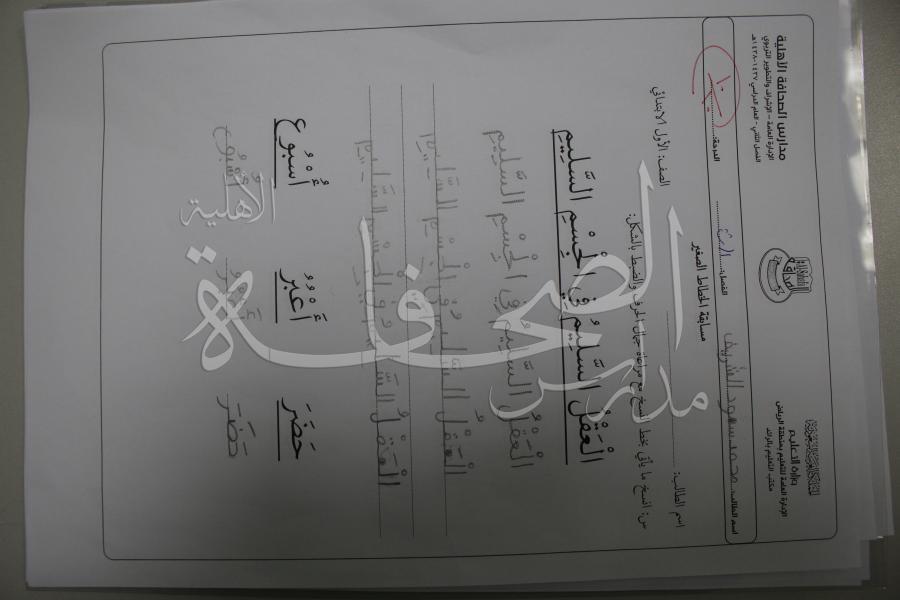 مدارس الصحافة الأهلية
الإدارة العامة - الإشراف والتطوير التربوي
الفصل الثاني - العام الدراسي ١٤٣٧-١٤٣٨هـ
وزارة التعليم
الإدارة العامة للتعليم بمنطقة الرياض
مكتب التعليم بالرائد
اسم الطالب: محمد سعود الشريف
الفصل:
الدرجة: ١٠
مسابقة الخطاط الصغير
اسم الطالب:
الصف: الأول الابتدائي
س: انسخ ما يأتي بخط النسخ مع مراعاة جمال الحرف والضبط بالشكل:
الْعَقْلُ السَّلِيمُ فِي الْجِسْمِ السَّلِيمِ
الْعَقْلُ السَّلِيمُ فِي الْجِسْمِ السَّلِيمِ
الْعَقْلُ السَّلِيمُ فِي الْجِسْمِ السَّلِيمِ
الْعَقْلُ السَّلِيمُ فِي الْجِسْمِ السَّلِيمِ
حَضَرَ أَعْبُرُ أُسْبُوعٌ
حَضَرَ
مدارس الصحافة الأهلية